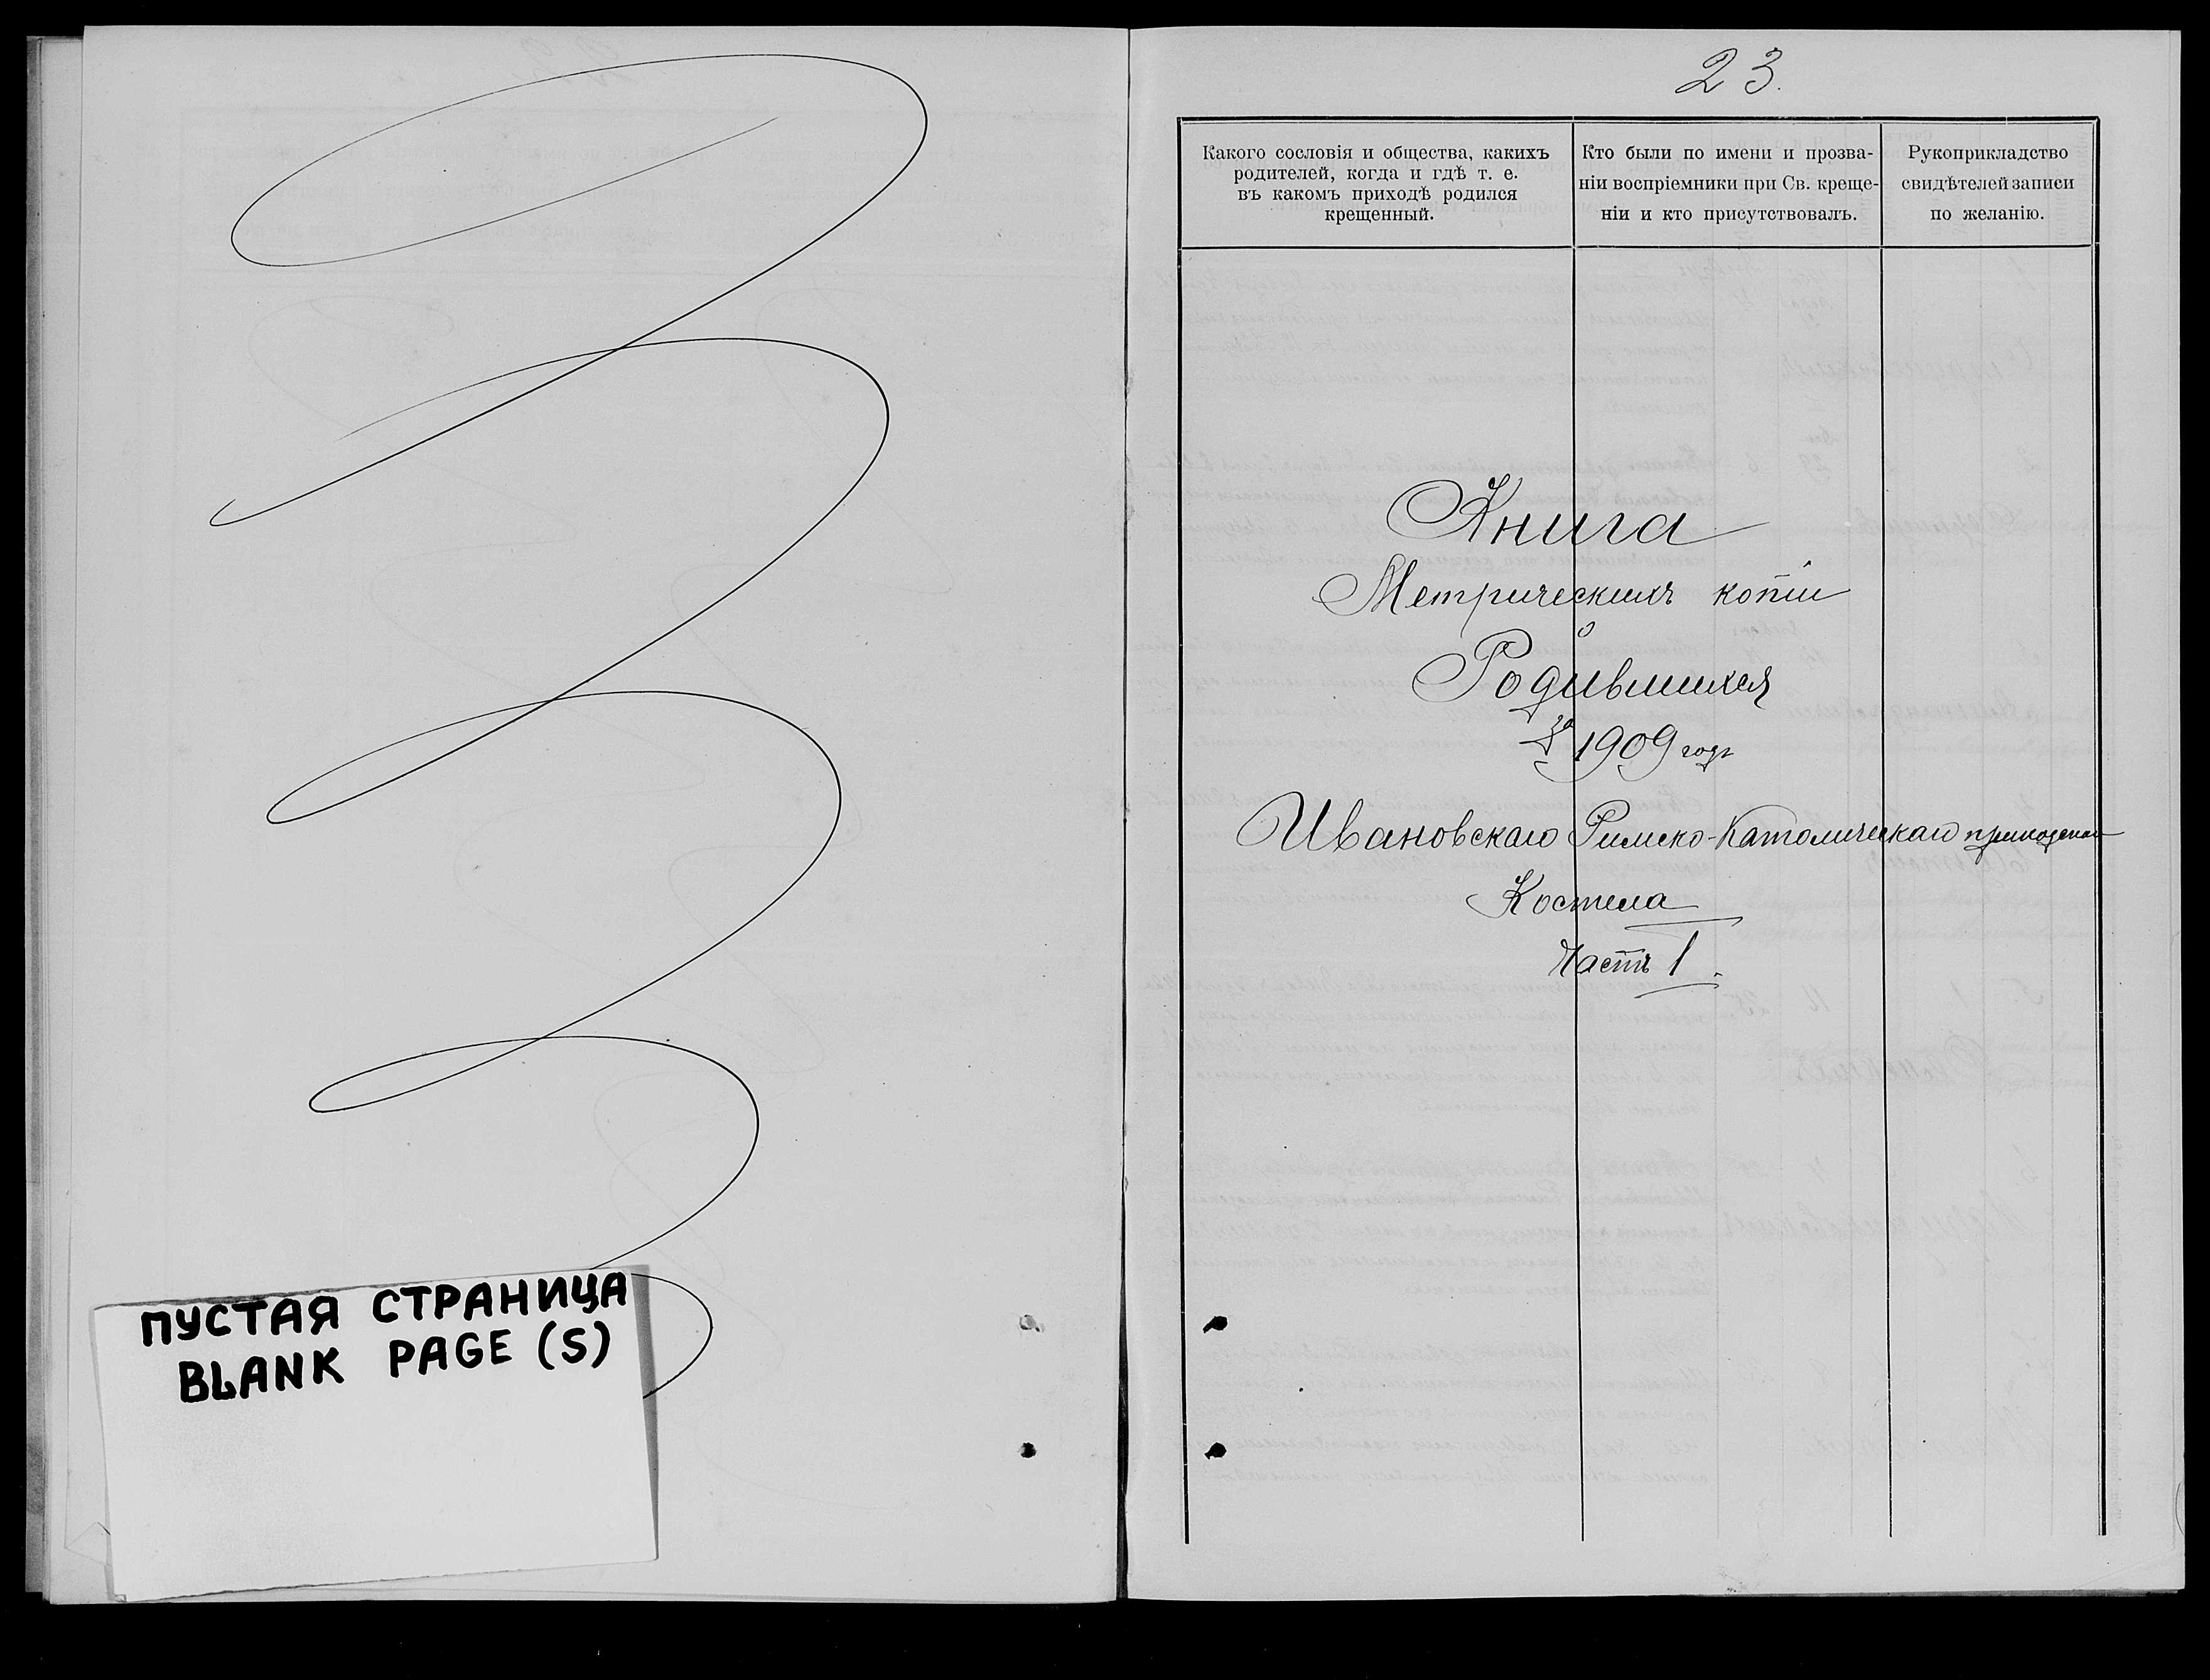 ПУСТАЯ СТРАНИЦА
BLANK PAGE (S)
23.
Какого сословія и общества, какихъ
родителей, когда и гдѣ т. е.
въ какомъ приходѣ родился
крещенный.
Кто были по имени и прозва-
ніи воспріемники при Св. креще-
ніи и кто присутствовалъ.
Рукоприкладство
свидѣтелей записи
по желанію.
Книга
Метрическихъ копій
о
Родившихся
за 1909 годъ
Ивановскаго Римско-Католическаго приходскаго
Костела
Часть 1.